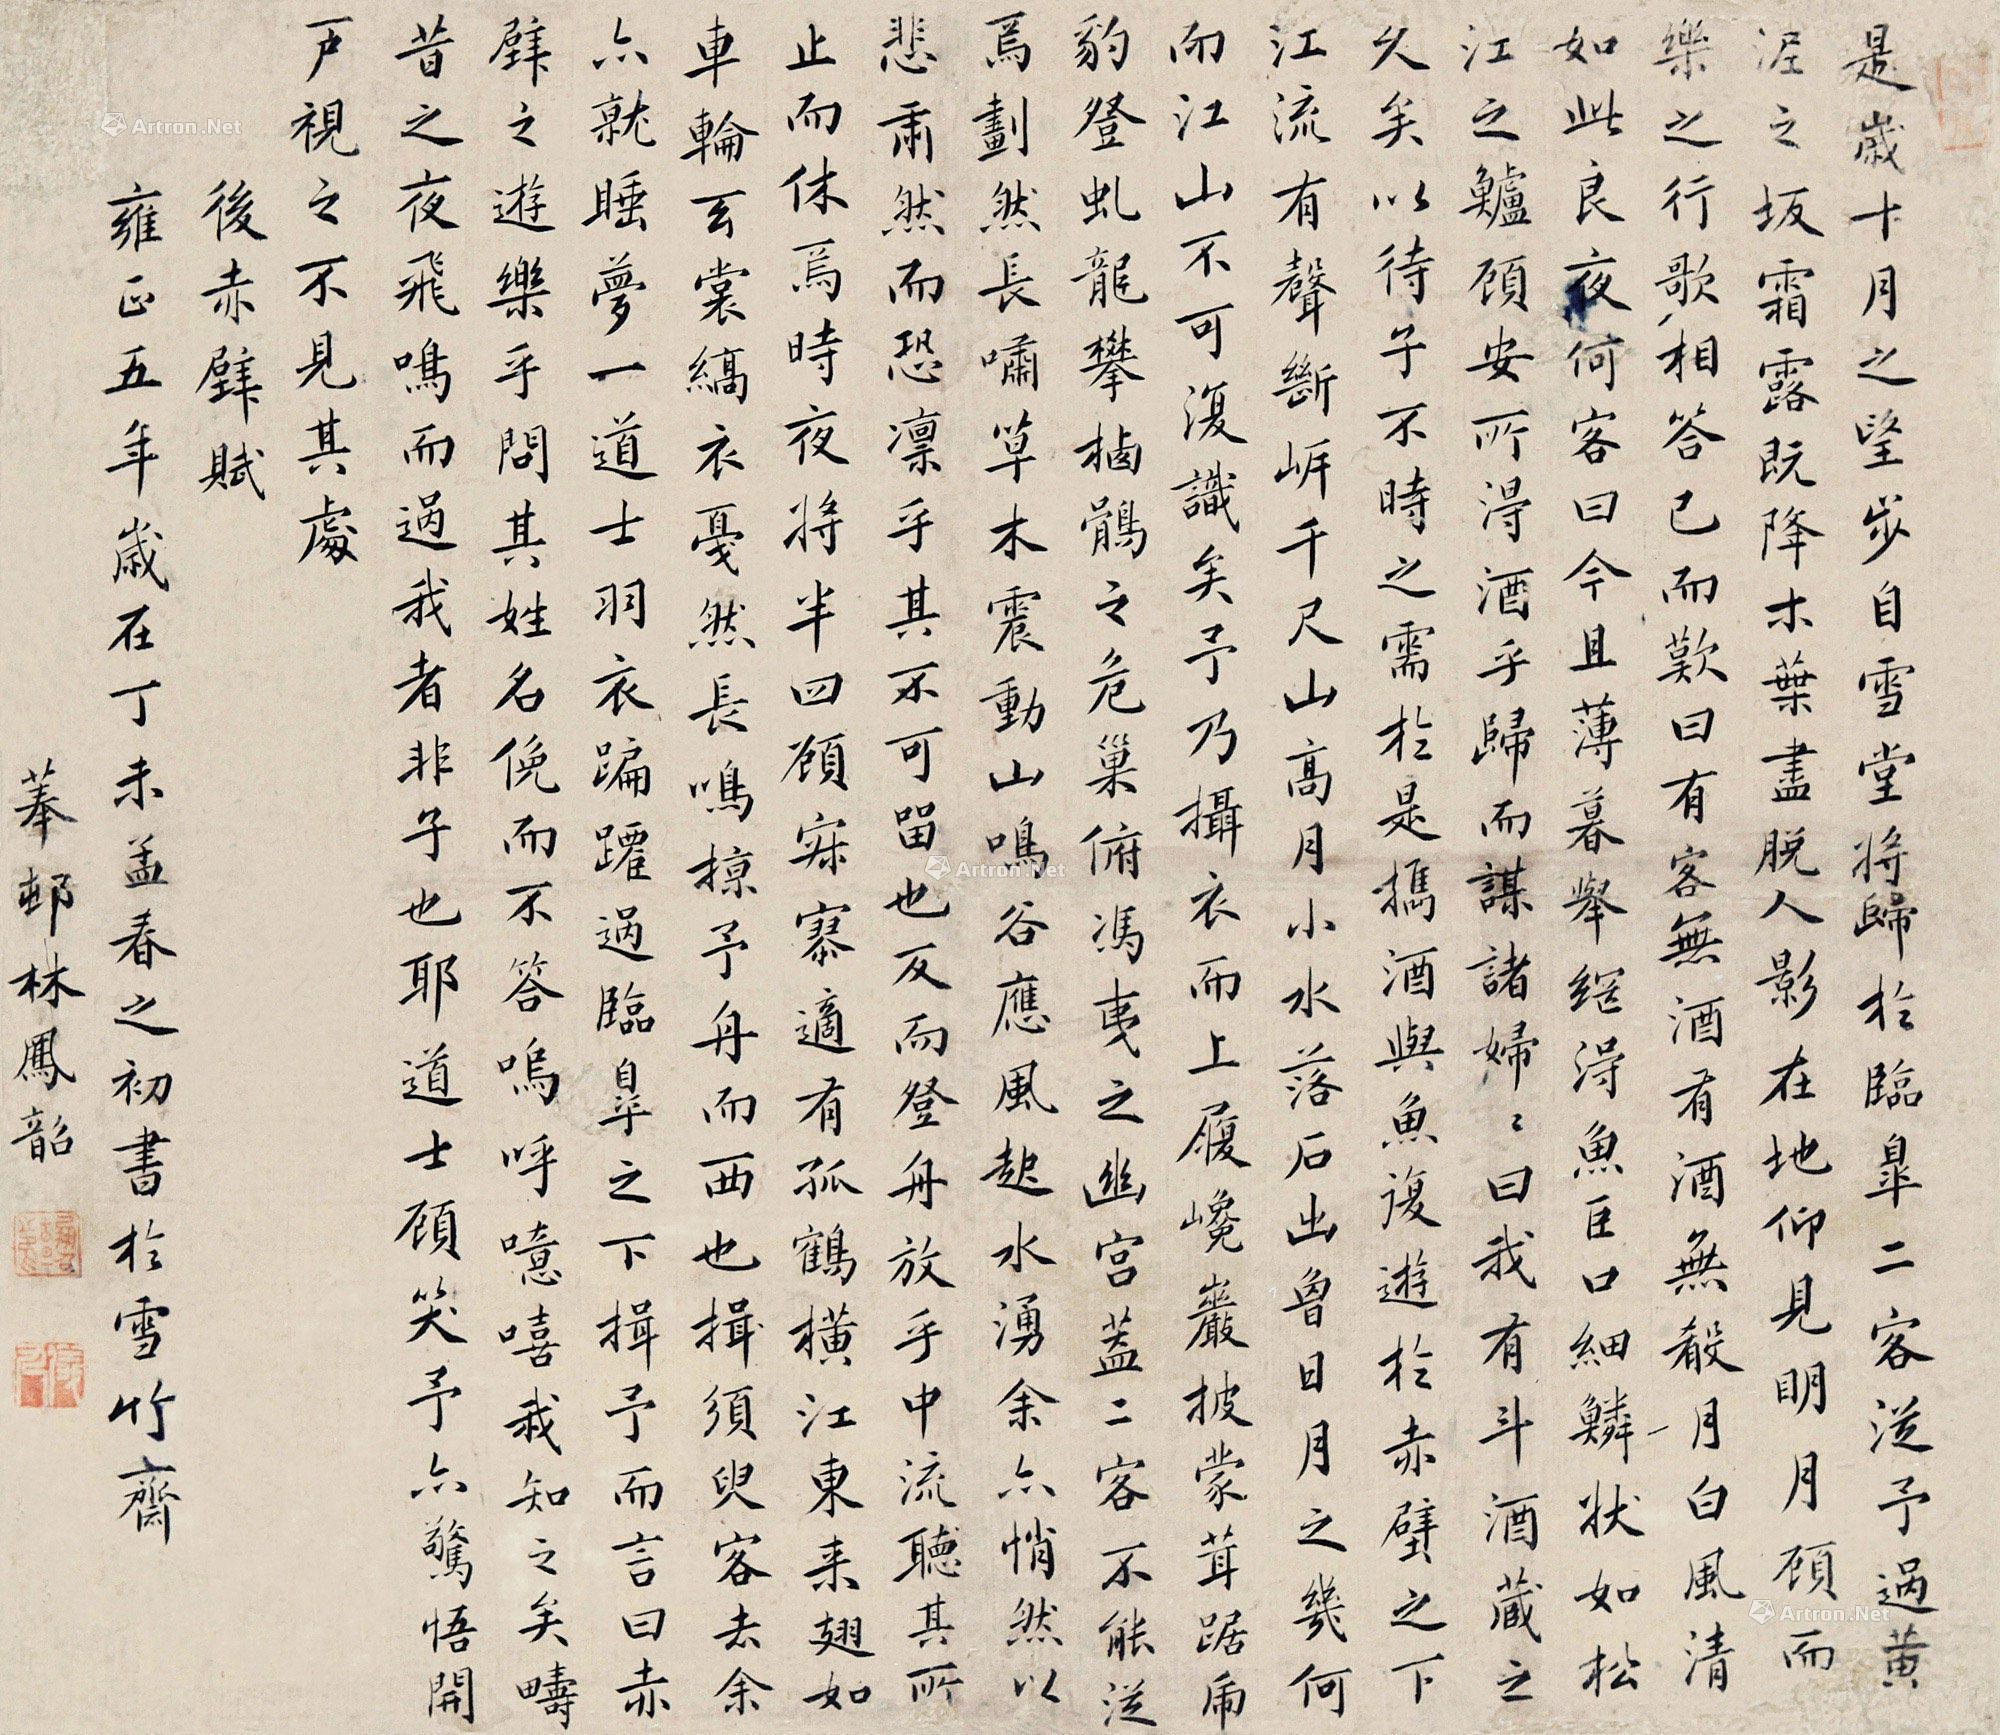 是歲十月之望步自雪堂將歸於臨皐二客從予過黃
泥之坂霜露既降木葉盡脫人影在地仰見明月顧而
樂之行歌相答已而歎曰有客無酒有酒無殽月白風清
如此良夜何客曰今且薄暮舉網得魚巨口細鱗狀如松
江之鱸顧安所得酒乎歸而謀諸婦〻曰我有斗酒藏之
久矣以待子不時之需於是攜酒與魚復遊於赤壁之下
江流有聲斷岍千尺山高月小水落石出曾日月之幾何
而江山不可復識矣予乃攝衣而上履巉巖披蒙茸踞虎
豹登虬龍攀栖鶻之危巢俯馮夷之幽宮蓋二客不能從
焉劃然長嘯草木震動山鳴谷應風起水湧余亦悄然以
悲肅然而恐凛乎其不可留也反而登舟放乎中流聽其所
止而休焉時夜將半四顧寂寥適有孤鶴橫江東來翅如
車輪玄裳縞衣戛然長鳴掠予舟而西也揖須臾客去余
亦就睡夢一道士羽衣蹁躚過臨皐之下揖予而言曰赤
壁之遊樂乎問其姓名俛而不答嗚呼噫嘻我知之矣疇
昔之夜飛鳴而過我者非子也耶道士顧笑予亦驚悟開
戶視之不見其處
後赤壁賦
雍正五年歲在丁未孟春之初書於雪竹齋
邨林鳳韶
Artron.Net
Artron.Net
Artron.Net